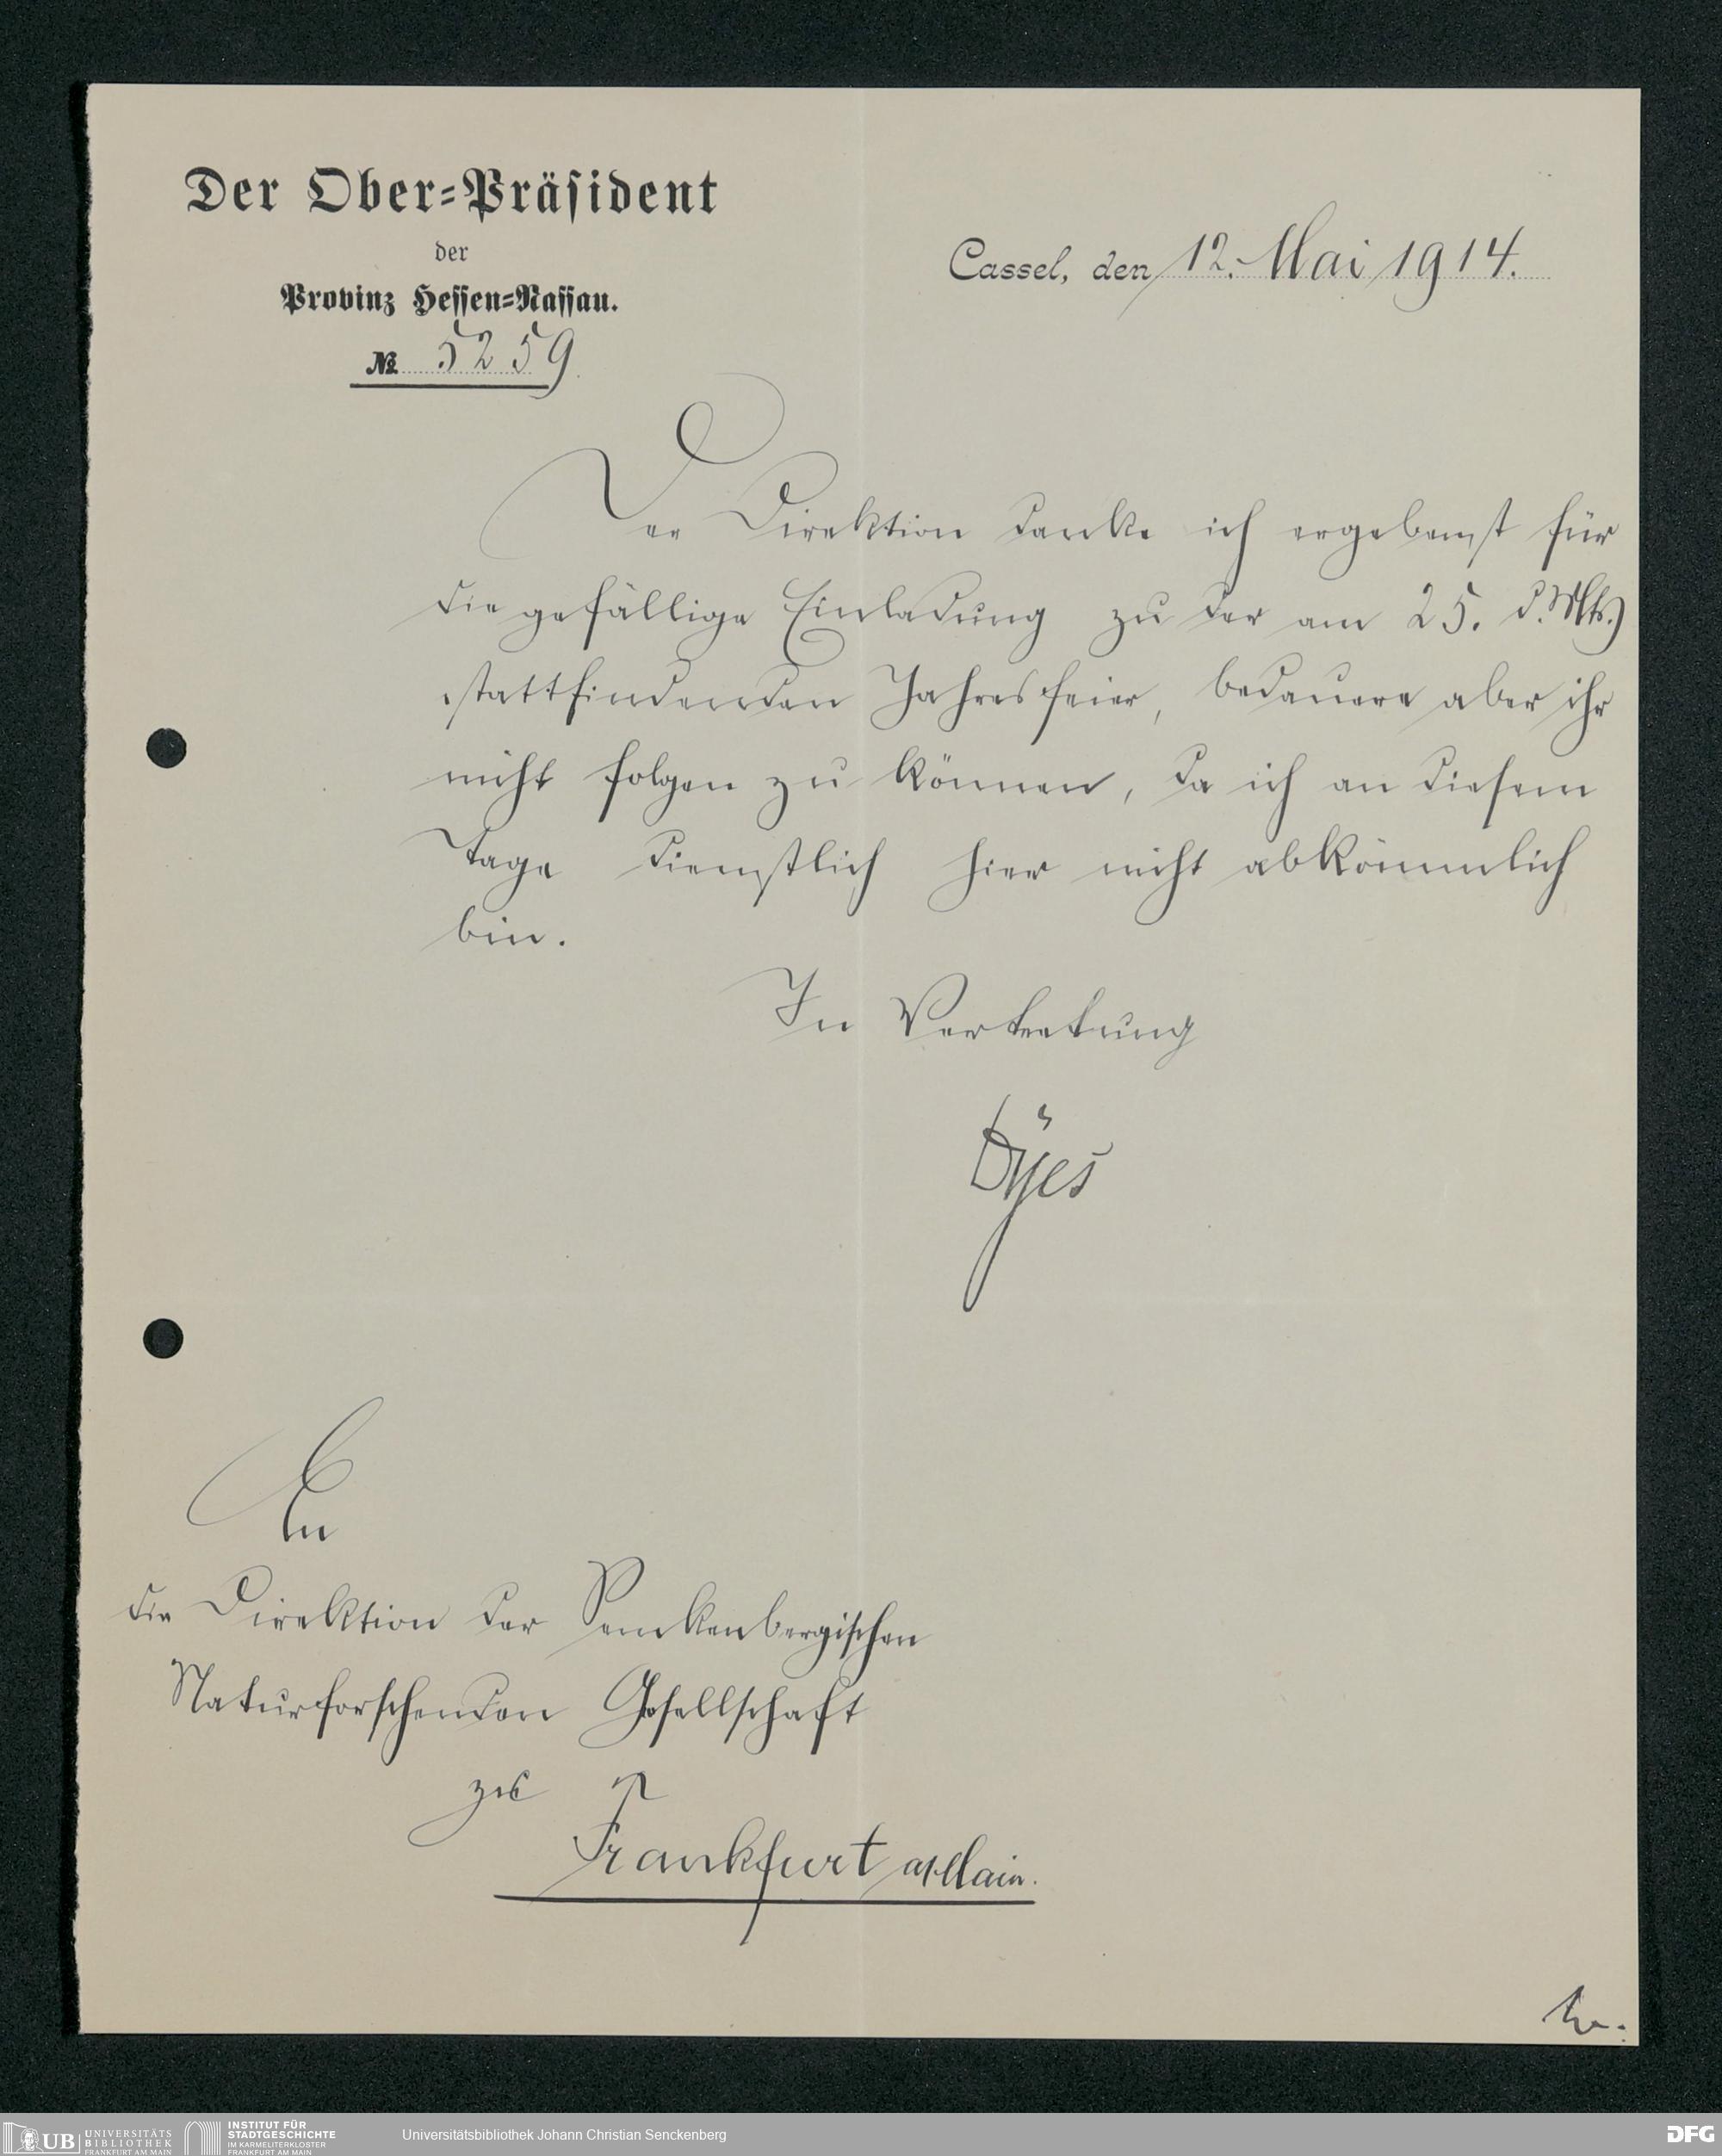 Der Ober=Präsident
der
Provinz Hessen=Nassau.
№ 5259
Cassel, den 12. Mai 1914.
Der Direktion danke ich ergebenst für
die gefällige Einladung zu der am 25. d. Mts.
stattfindenden Jahresfeier, bedauere aber ihr
nicht folgen zu können, da ich an diesem
Tage dienstlich hier nicht abkömmlich
bin.
In Vertretung
Dyes
An
die Direktion der Senckenbergischen
Naturforschenden Gesellschaft
zu
Frankfurt a/Main.
UB UNIVERSITÄTS
BIBLIOTHEK
FRANKFURT AM MAIN
INSTITUT FÜR
STADTGESCHICHTE
IM KARMELITERKLOSTER
FRANKFURT AM MAIN
Universitätsbibliothek Johann Christian Senckenberg
DFG